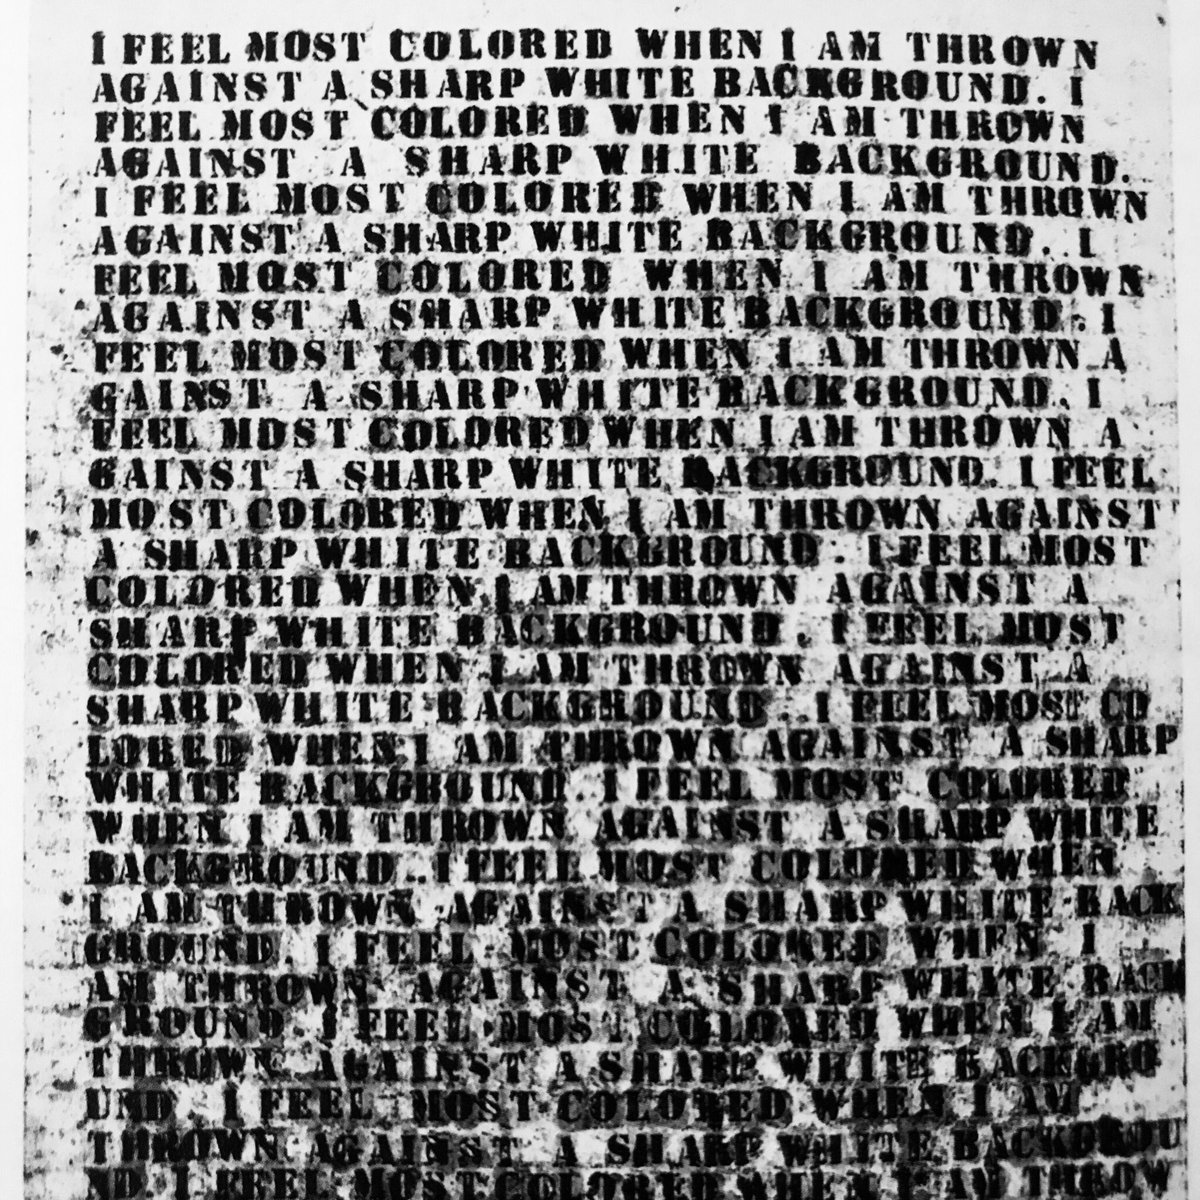 I FEEL MOST COLORED WHEN I AM THROWN
AGAINST A SHARP WHITE BACKGROUND. I
FEEL MOST COLORED WHEN I AM THROWN
AGAINST A SHARP WHITE BACKGROUND.
I FEEL MOST COLORED WHEN I AM THROWN
AGAINST A SHARP WHITE BACKGROUND. I
FEEL MOST COLORED WHEN I AM THROWN
AGAINST A SHARP WHITE BACKGROUND. I
FEEL MOST COLORED WHEN I AM THROWN A
GAINST A SHARP WHITE BACKGROUND. I
FEEL MOST COLORED WHEN I AM THROWN A
GAINST A SHARP WHITE BACKGROUND. I FEEL
MOST COLORED WHEN I AM THROWN AGAINST
A SHARP WHITE BACKGROUND. I FEEL MOST
COLORED WHEN I AM THROWN AGAINST A
SHARP WHITE BACKGROUND. I FEEL MOST
COLORED WHEN I AM THROWN AGAINST A
SHARP WHITE BACKGROUND. I FEEL MOST CO
LORED WHEN I AM THROWN AGAINST A SHARP
WHITE BACKGROUND. I FEEL MOST COLORED
WHEN I AM THROWN AGAINST A SHARP WHITE
BACKGROUND. I FEEL MOST COLORED WHEN
I AM THROWN AGAINST A SHARP WHITE BACK
GROUND. I FEEL MOST COLORED WHEN I
AM THROWN AGAINST A SHARP WHITE BACK
GROUND. I FEEL MOST COLORED WHEN I AM
THROWN AGAINST A SHARP WHITE BACKGRO
UND. I FEEL MOST COLORED WHEN I AM
THROWN AGAINST A SHARP WHITE BACKGROU
ND. I FEEL MOST COLORED WHEN I AM THROW